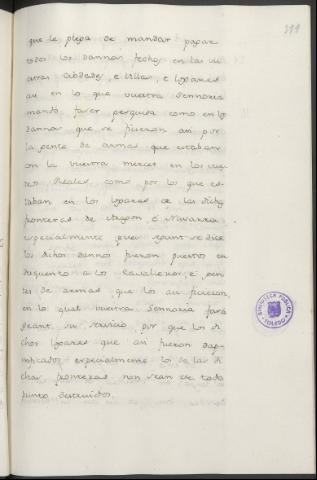 que le plega de mandar pagar
todos los dannos fechos en las vu
estras Cibdades, e Villas, e logares
asi en lo que vuestra Sennoria
mando facer pesquisa como en los
dannos que se ficieron asi por
la gente de armas que estaban
con la vuestra merced en los vues
tros Reales, como por los que es
taban en los logares de las dichas
fronteras de Aragon, e Navarra
especialmente pues segunt se dice
los dichos dannos fueron puestos en
descuento a los Cavalleros, e gen
tes de armas, que los asi ficieron,
en lo qual vuestra Sennoria fara
grant su servicio, por que los di
chos logares que asi fueron dap
nificados especialmente los de las di
chas fronteras non sean de todo
punto destruidos.
BIBLIOTECA PUBLICA
TOLEDO